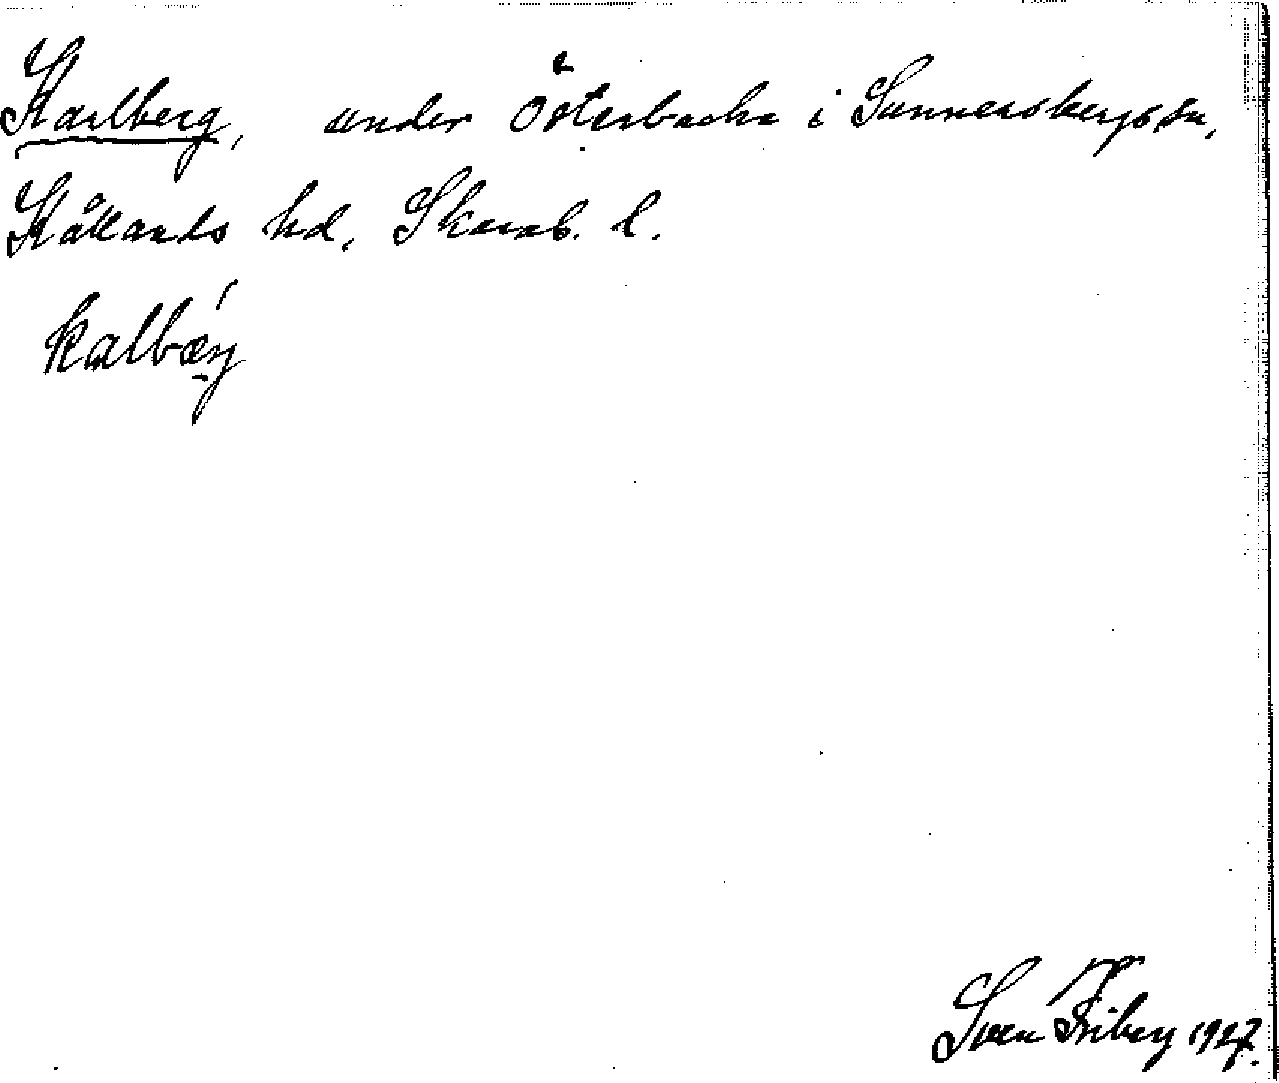 Karlberg, under Österbacka i Sunnersbergs sn,
Kållands hd, Skarab. l.
kalbæ̱ŋ́
Sven Friberg 1927.